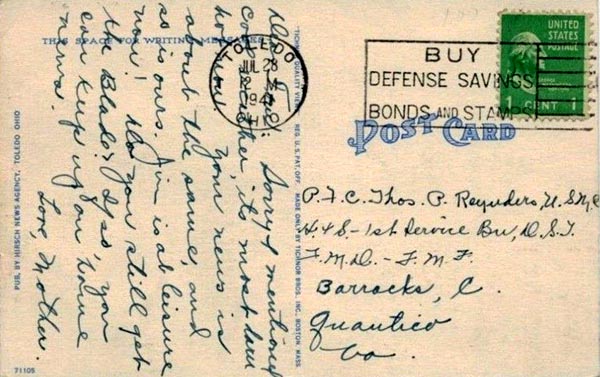 THIS SPACE FOR WRITING MESSAGES
TOLEDO
JUL 28
OHIO
BUY
DEFENSE SAVINGS
BONDS AND STAMPS
UNITED
STATES
POSTAGE
CENT 1
POST CARD
Sorry I mentioned
weather, it's most been
hot. Your news is
about the same, and
so is ours. Jim is at leisure
now! Do you still get
the Blade? If so, you
can keep up on home
news.
Love, Mother.
P.F.C. Thos. P. Reynders, U.S.M.C.
H & S - 1st Service Bn, D.S.T.
F.M.D. - F.M.F.
Barracks, C.
Quantico
Va.
PUB. BY HIRSCH NEWS AGENCY, TOLEDO, OHIO
TICHNOR QUALITY VIEWS REG. U.S. PAT. OFF. MADE ONLY BY TICHNOR BROS. INC., BOSTON, MASS.
71105